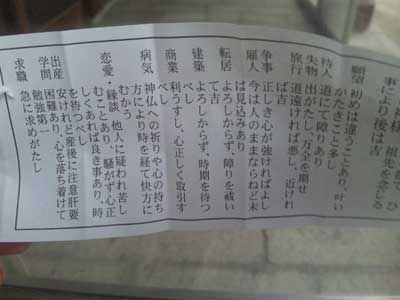 事により後は吉
願望 初めは違うことあり、叶い
がたきこと多し
待人 道にて障りあり
失物 出がたし、万全を期せ
旅行 道遠ければ悪し、近けれ
ば吉
争事 正しき心が強ければよし
雇人 今は人のままならねど末
は見込みあり
転居 よろしからず、障りを祓い
て吉
建築 よろしからず、時期を待つ
べし
商業 利うすし、心正しく取引す
べし
病気 神仏への祈りや心の持ち
方により時を経て快方に
むかう
恋愛・縁談 他人に疑われ苦し
むことあり、騒がず心正
しくあれば良き事あり、時
を待つべし
出産 安けれど産後に注意肝要
学問 困難あり、心を落ち着けて
勉強第一
求職 急に求めがたし